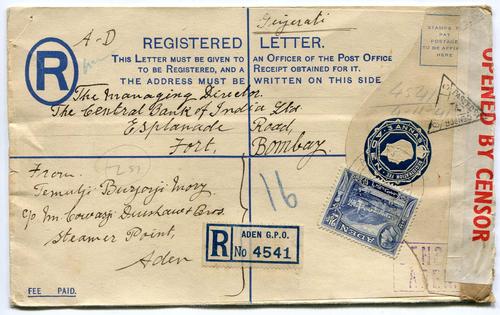 A-D
Gujerati
REGISTERED LETTER.
THIS LETTER MUST BE GIVEN TO AN OFFICER OF THE POST OFFICE
TO BE REGISTERED, AND A RECEIPT OBTAINED FOR IT.
THE ADDRESS MUST BE WRITTEN ON THIS SIDE
R
STAMPS TO
PAY
POSTAGE
TO BE AFFIXED
HERE
The Managing Director
The Central Bank of India Ltd
Esplanade Road,
Fort, Bombay
4541
OPENED BY CENSOR
3 ANNAS
ADEN
From
Temulji Burjorji Mory
c/o Mr Cowasji Dinshaw & Bros.
Steamer Point,
Aden
16
R ADEN G.P.O.
No 4541
ADEN
FEE PAID.